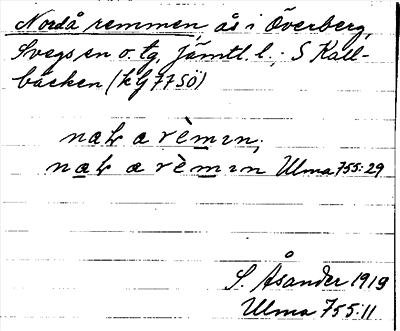 Nordå remmen, ås i Överberg,
Svegs sn o. tg, Jämtl. l.; S Kall-
bäcken (kG 77 SÖ)
naꞎ a rèmɪn;
naꞎ a rèmɪn Ulma 755:29
S. Åsander 1919
Ulma 755:11